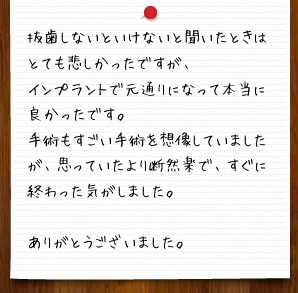 抜歯しないといけないと聞いたときは
とても悲しかったですが、
インプラントで元通りになって本当に
良かったです。
手術もすごい手術を想像していました
が、思っていたより断然楽で、すぐに
終わった気がしました。
ありがとうございました。